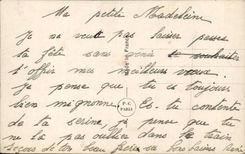 Ma petite Madeleine
Je ne veux pas laisser passer
ta fête sans venir te souhaiter
t'offrir mes meilleurs vœux.
je pense que tu es toujours
bien mignonne. Es-tu contente
de la serine, je pense que tu
ne l'a pas oublier dans le train
Reçois de ton beau frère
P-C
PARIS